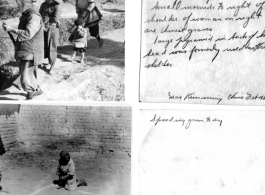 Small mounds to right of
shoulder of woman on right
are Chinese graves
Large in back of
head was formerly used
shelter
Near Kunming China Feb 45
Spreading grain to dry